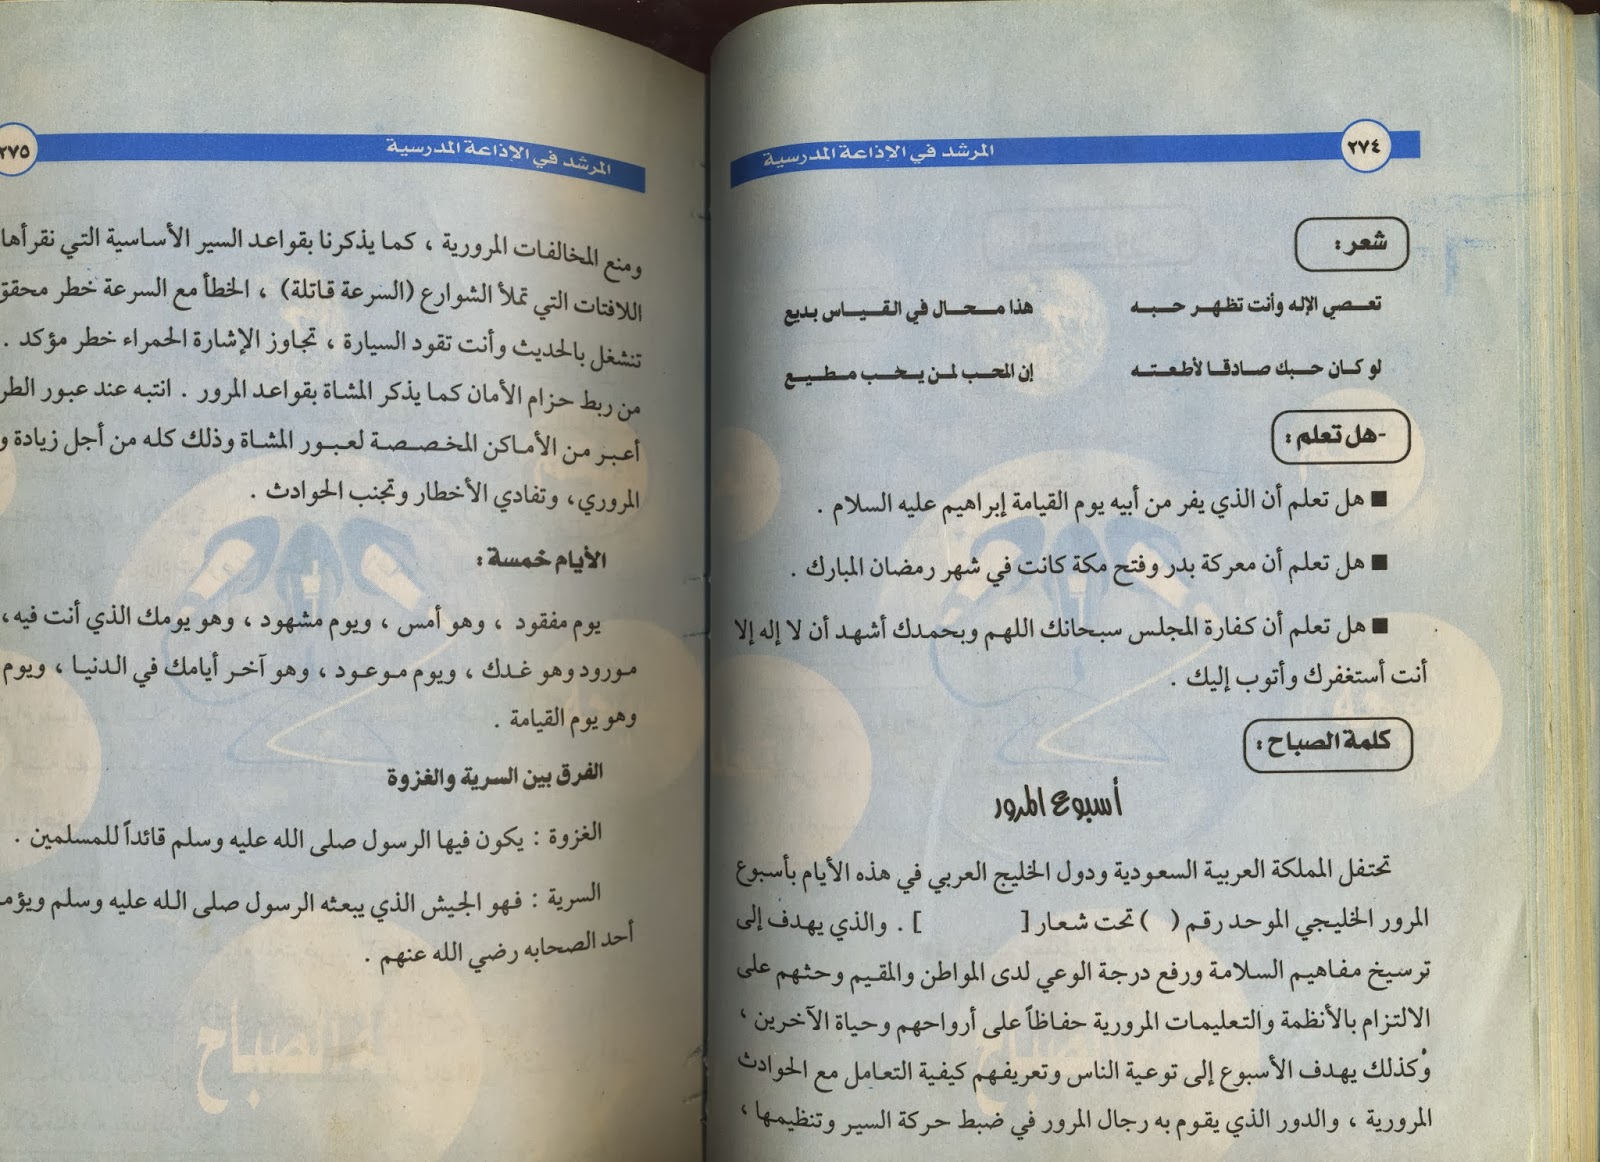 ٢٧٤
المرشد في الإذاعة المدرسية
شعر:
تعصي الإله وأنت تظهر حبه هذا محال في القياس بديع
لو كان حبك صادقا لأطعته إن المحب لمن يحب مطيع
-هل تعلم:
■ هل تعلم أن الذي يفر من أبيه يوم القيامة إبراهيم عليه السلام .
■ هل تعلم أن معركة بدر وفتح مكة كانت في شهر رمضان المبارك .
■ هل تعلم أن كفارة المجلس سبحانك اللهم وبحمدك أشهد أن لا إله إلا
أنت أستغفرك وأتوب إليك .
كلمة الصباح:
أسبوع المرور
تحتفل المملكة العربية السعودية ودول الخليج العربي في هذه الأيام بأسبوع
المرور الخليجي الموحد رقم ( ) تحت شعار [ ] . والذي يهدف إلى
ترسيخ مفاهيم السلامة ورفع درجة الوعي لدى المواطن والمقيم وحثهم على
الالتزام بالأنظمة والتعليمات المرورية حفاظاً على أرواحهم وحياة الآخرين ،
وكذلك يهدف الأسبوع إلى توعية الناس وتعريفهم كيفية التعامل مع الحوادث
المرورية ، والدور الذي يقوم به رجال المرور في ضبط حركة السير وتنظيمها ،
المرشد في الإذاعة المدرسية
٢٧٥
ومنع المخالفات المرورية ، كما يذكرنا بقواعد السير الأساسية التي نقرأها
اللافتات التي تملأ الشوارع (السرعة قاتلة) ، الخطأ مع السرعة خطر محقق
تنشغل بالحديث وأنت تقود السيارة ، تجاوز الإشارة الحمراء خطر مؤكد .
من ربط حزام الأمان كما يذكر المشاة بقواعد المرور . انتبه عند عبور الطر
أعبر من الأماكن المخصصة لعبور المشاة وذلك كله من أجل زيادة و
المروري، وتفادي الأخطار وتجنب الحوادث .
الأيام خمسة:
يوم مفقود ، وهو أمس ، ويوم مشهود ، وهو يومك الذي أنت فيه،
مورود وهو غدك ، ويوم موعود ، وهو آخر أيامك في الدنيا ، ويوم
وهو يوم القيامة .
الفرق بين السرية والغزوة
الغزوة : يكون فيها الرسول صلى الله عليه وسلم قائداً للمسلمين .
السرية : فهو الجيش الذي يبعثه الرسول صلى الله عليه وسلم ويؤمـ
أحد الصحابه رضي الله عنهم .